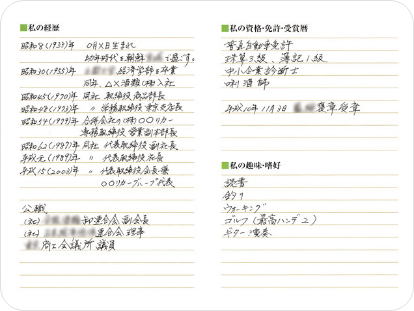 私の経歴
昭和8(1933)年 〇月×日生まれ
幼年時代を朝鮮 で過ごす。
昭和30(1955)年 経済学部を卒業
同年、△×酒類(株)入社
昭和45(1970)年 同社 取締役 商品部長
昭和48(1973)年 〃 常務取締役 東京支店長
昭和54(1979)年 合併会社の(株)〇〇リカー
専務取締役 営業副本部長
昭和62(1987)年 同社 代表取締役 副社長
平成元(1989)年 〃 代表取締役 社長
平成15(2003)年 〃 代表取締役会長兼
〇〇リカーグループ代表
公職
(社) 卸連合会 副会長
(社) 連合会 理事
商工会議所 議員
私の資格・免許・受賞暦
普通自動車免許
珠算3級、簿記1級
中小企業診断士
唎酒師
平成10年11月3日 褒章受章
私の趣味・嗜好
読書
釣り
ウォーキング
ゴルフ (最高ハンデ2)
ギター演奏